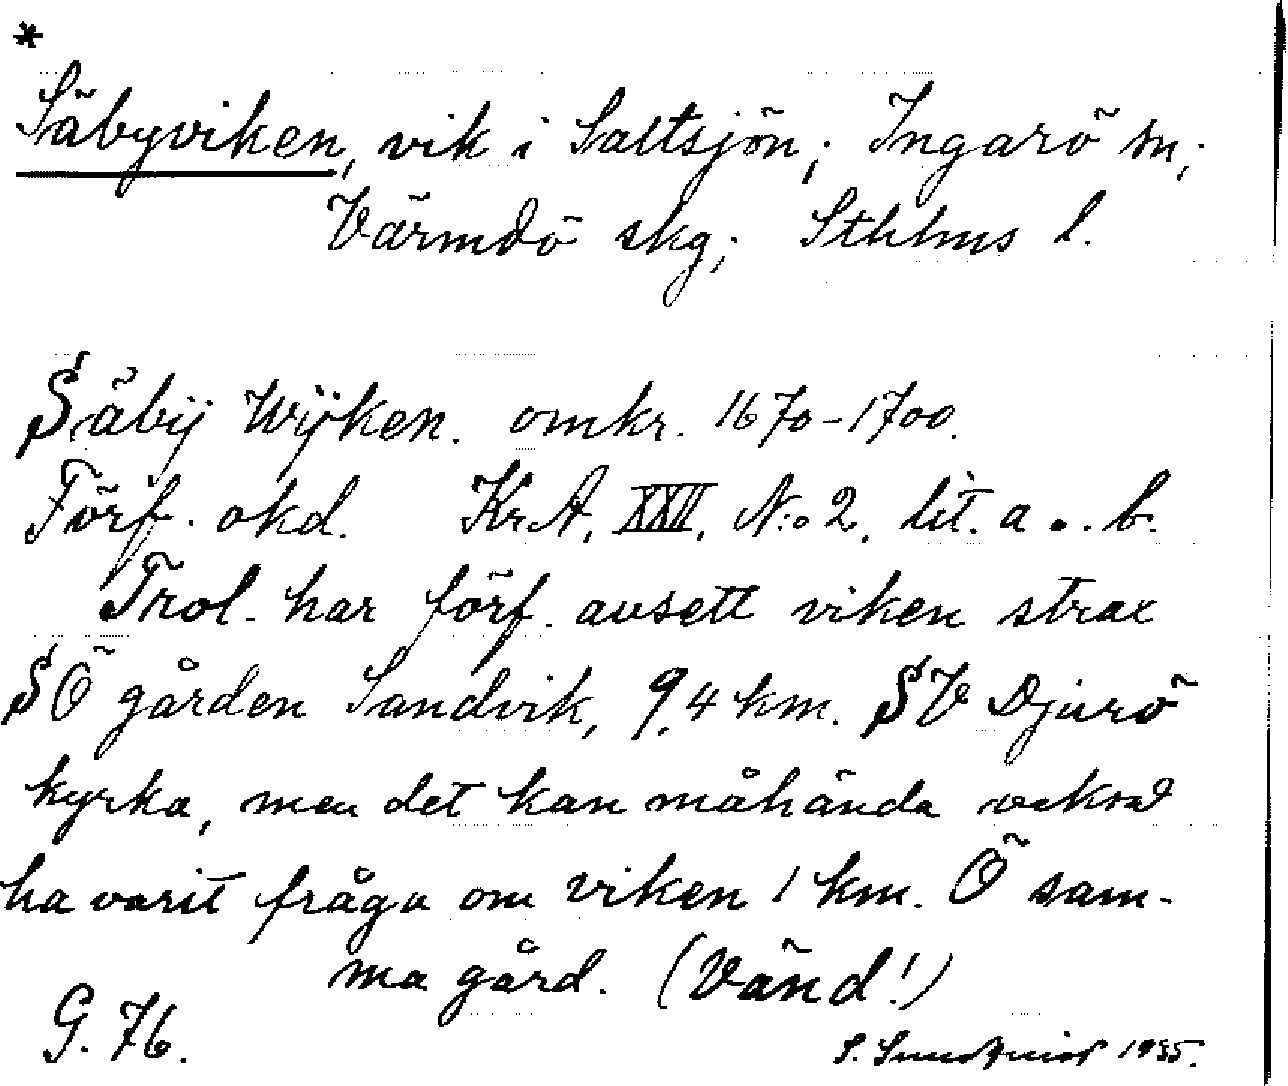 *
Säbyviken, vik i Saltsjön; Ingarö sn;
Värmdö skg; Sthlms l.
Säbÿ Wÿken. omkr. 1670-1700.
Förf. okd. KrA, XXII, N:o 2, lit. a o. b.
Trol. har förf. avsett viken strax
SÖ gården Sandvik, 9,4 km. SV Djurö
kyrka, men det kan måhända också
ha varit fråga om viken 1 km. Ö sam-
ma gård. (Vänd!)
G. 76.
S. 1935.